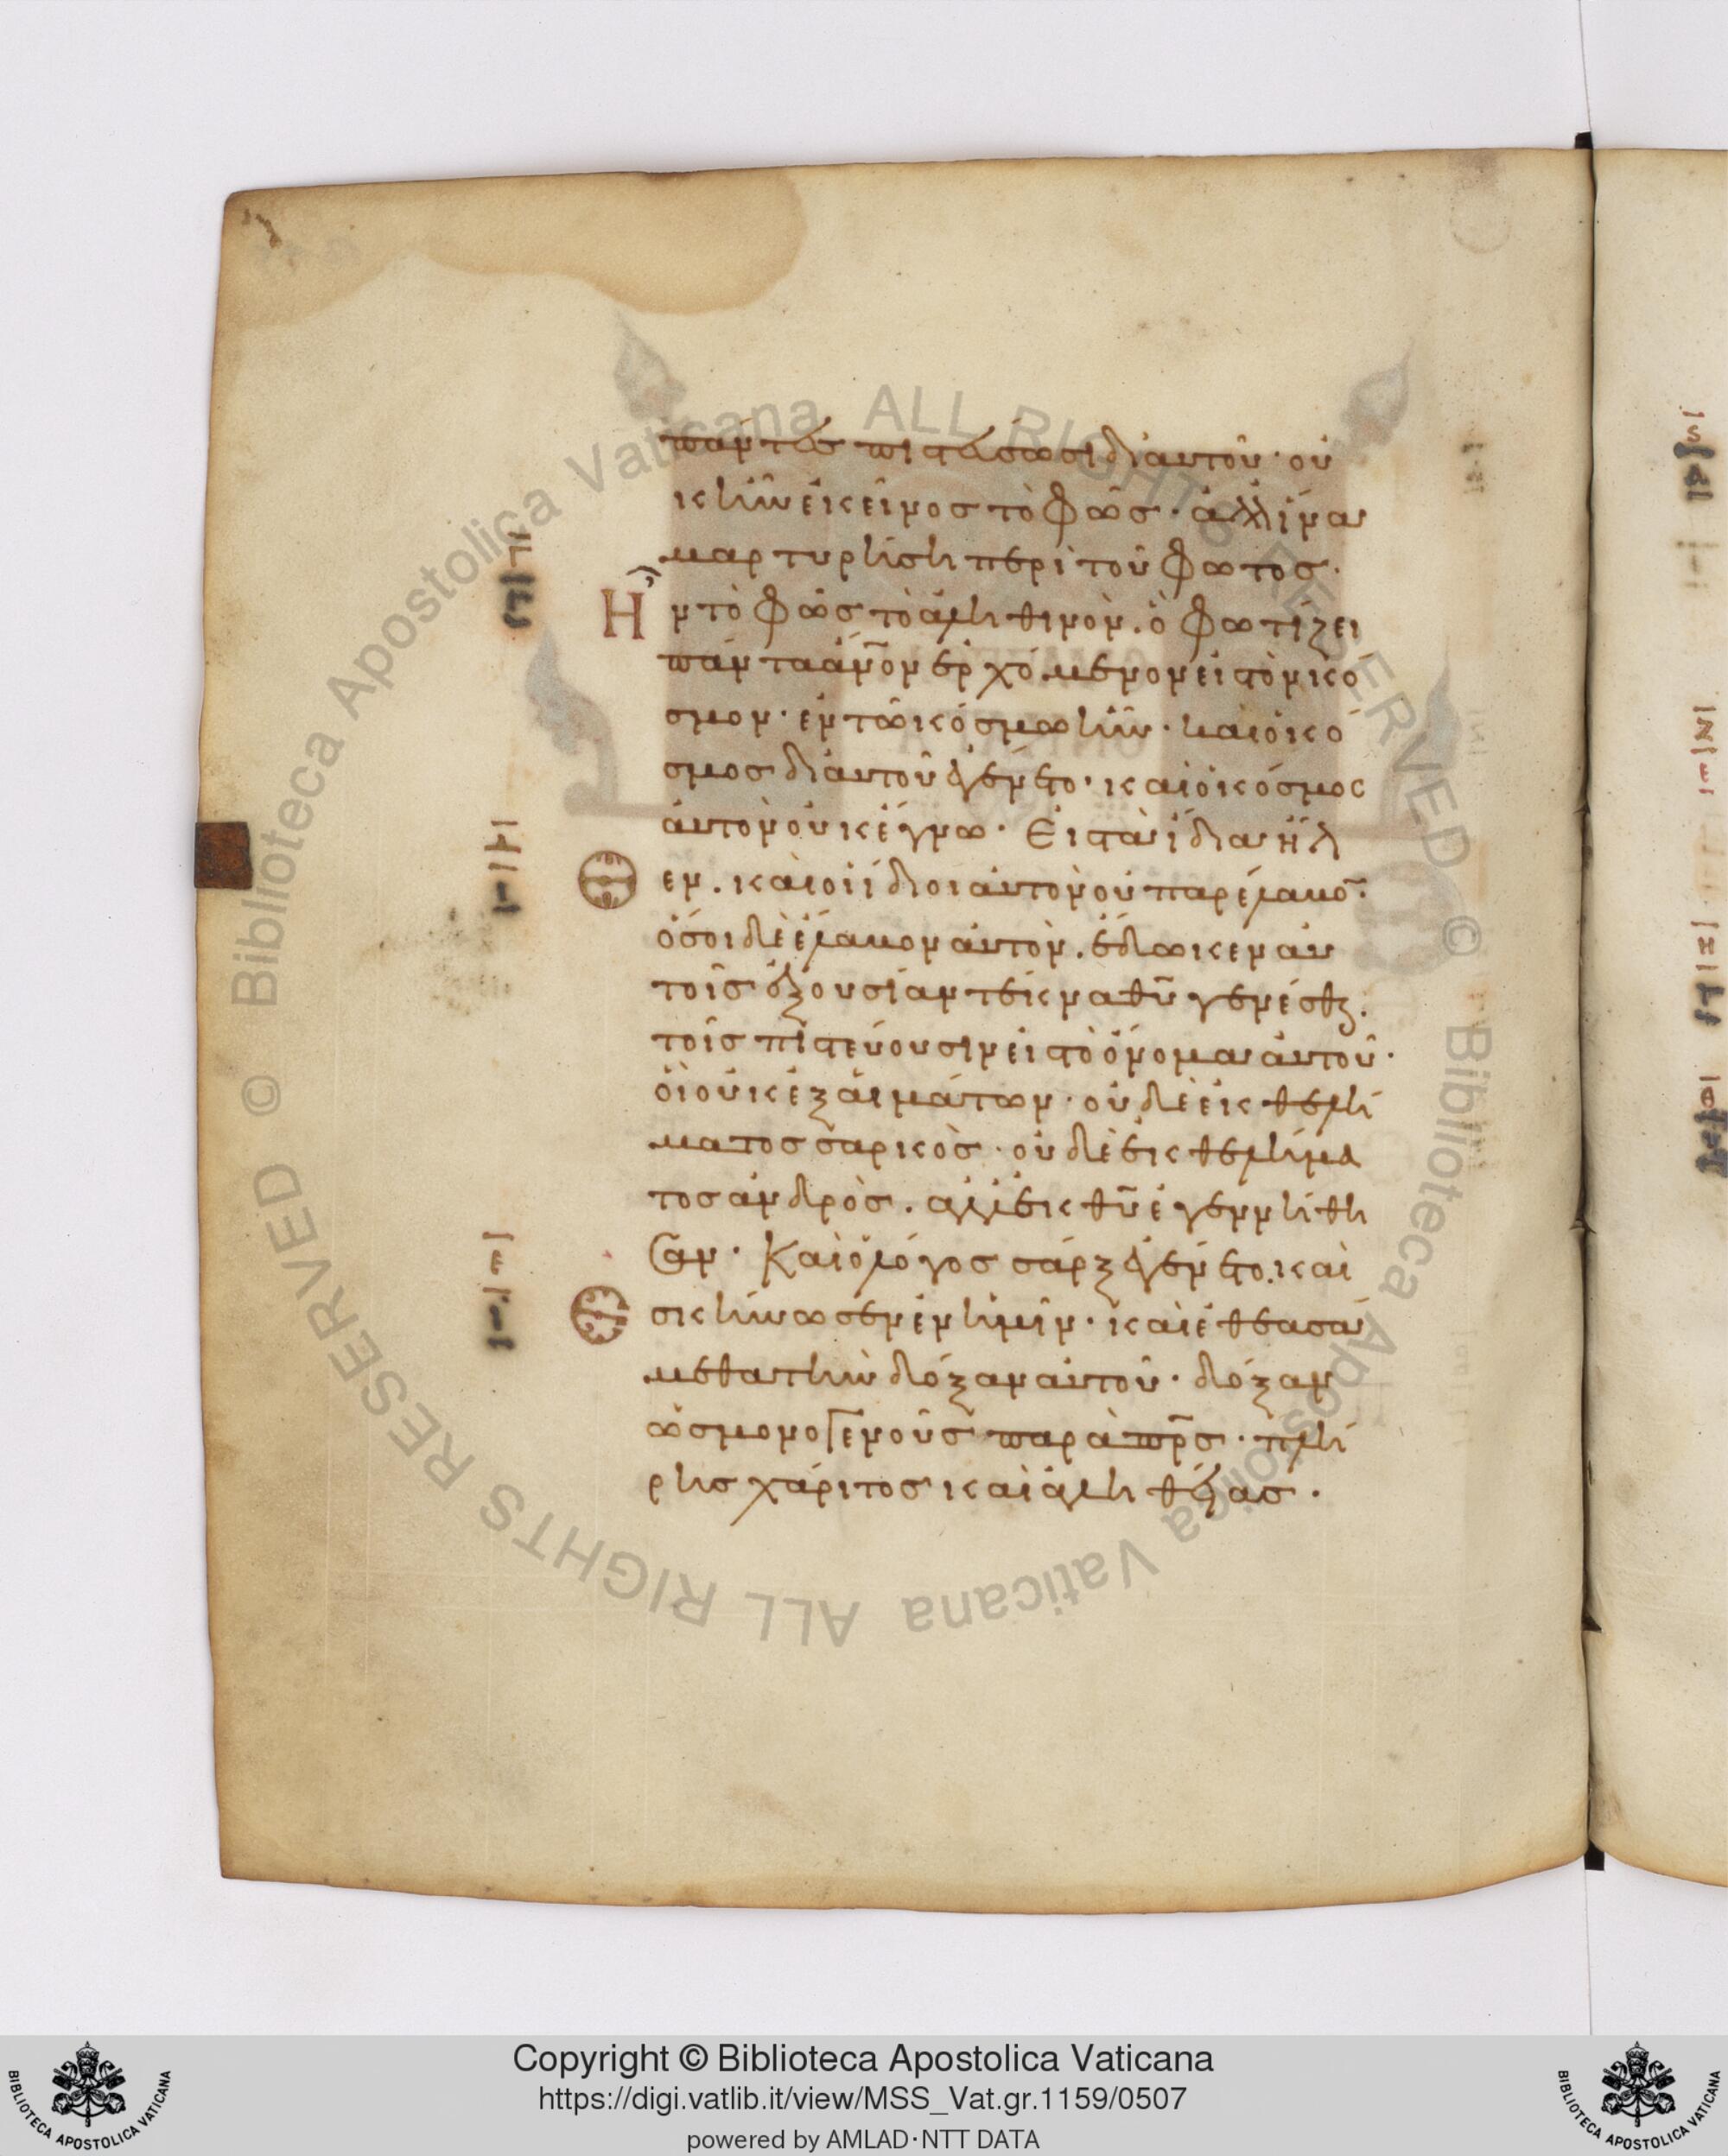 πάντες πιστεύσωσι δι αυτοῦ· οὐ
κ ἦν ἐκεῖνος τὸ φῶς· ἀλλ ἵνα
μαρτυρήση περὶ τοῦ φωτος·
Ἦν τὸ φῶς τὸ ἀληθινὸν. ὃ φωτίζει
πάντα ἄν̅ον ἐρχόμενον εἰς τὸν κό
σμον· ἐν τῶ κόσμω ἦν· καὶ ὁ κό
σμος δι αυτοῦ ἐγένετο· καὶ ὁ κόσμος
ἀυτὸν οὐκ ἔγνω· Εἰς τὰ ἴδια ἦλ
θεν. καὶ οἱ ἴδιοι ἀυτὸν οὐ παρέλαβο̅·
ὅσοι δὲ ἔλαβον ἀυτὸν. ἔδωκεν ἀυ
τοῖς ἐξουσίαν τέκνα θ̅υ γενέσθαι.
τοῖς πιστεύουσιν εἰς τὸ ὄνομα ἀυτοῦ·
ὃι οὐκ ἐξ ἁιμάτων· οὐδὲ ἐκ θελή
ματος σαρκὸς· οὐδὲ ἐκ θελήμα
τος ἀνδρὸς. ἀλλ ἐκ θ̅υ ἐγεννήθη
σαν· Καὶ ὁ λόγος σάρξ ἐγένετο. καὶ
ἐσκήνωσεν ἐν ἡμῖν· καὶ ἐθεασά
μεθα τὴν δόξαν ἀυτοῦ· δόξαν
ὡς μονογενοῦς παρὰ π̅ρ̅ς· πλή
ρης χάριτος καὶ ἀληθείας·
Copyright © Biblioteca Apostolica Vaticana
https://digi.vatlib.it/view/MSS_Vat.gr.1159/0507
powered by AMLAD·NTT DATA
BIBLIOTECA APOSTOLICA VATICANA
BIBLIOTECA APOSTOLICA VATICANA
© Biblioteca Apostolica Vaticana ALL RIGHTS RESERVED © Biblioteca Apostolica Vaticana ALL RIGHTS RESERVED